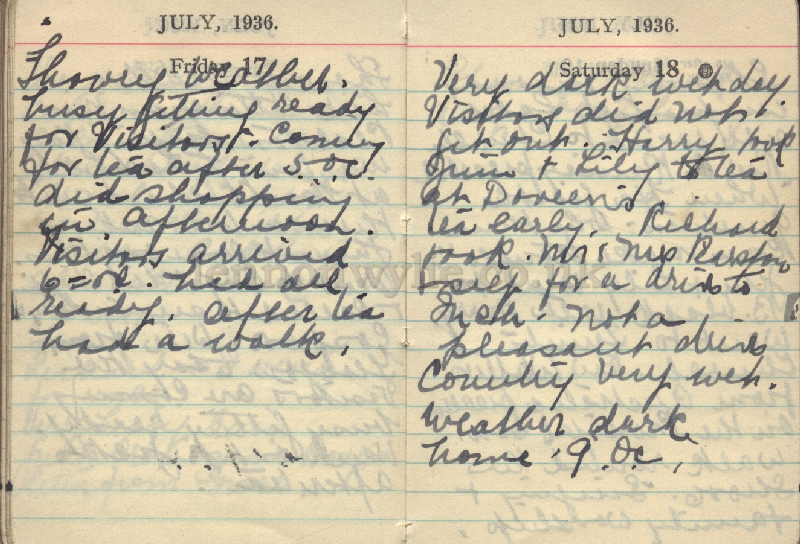 JULY, 1936.
Friday 17
Showry weather.
busy getting ready
for Visitors. Coming
for tea after 5.oc.
did shopping
in afternoon.
Visitors arrived
6=oc. had all
ready. after tea
had a walk.
JULY, 1936.
Saturday 18
Very dark wet day
Visitors did not
get out. Harry took
Jim + Lily to tea
at Doreen's
tea early. Richard
took. Mr & Mrs
+ self for a drive to
Inch. Not a
pleasant drive
Country very wet.
Weather dark
home 9.Oc,